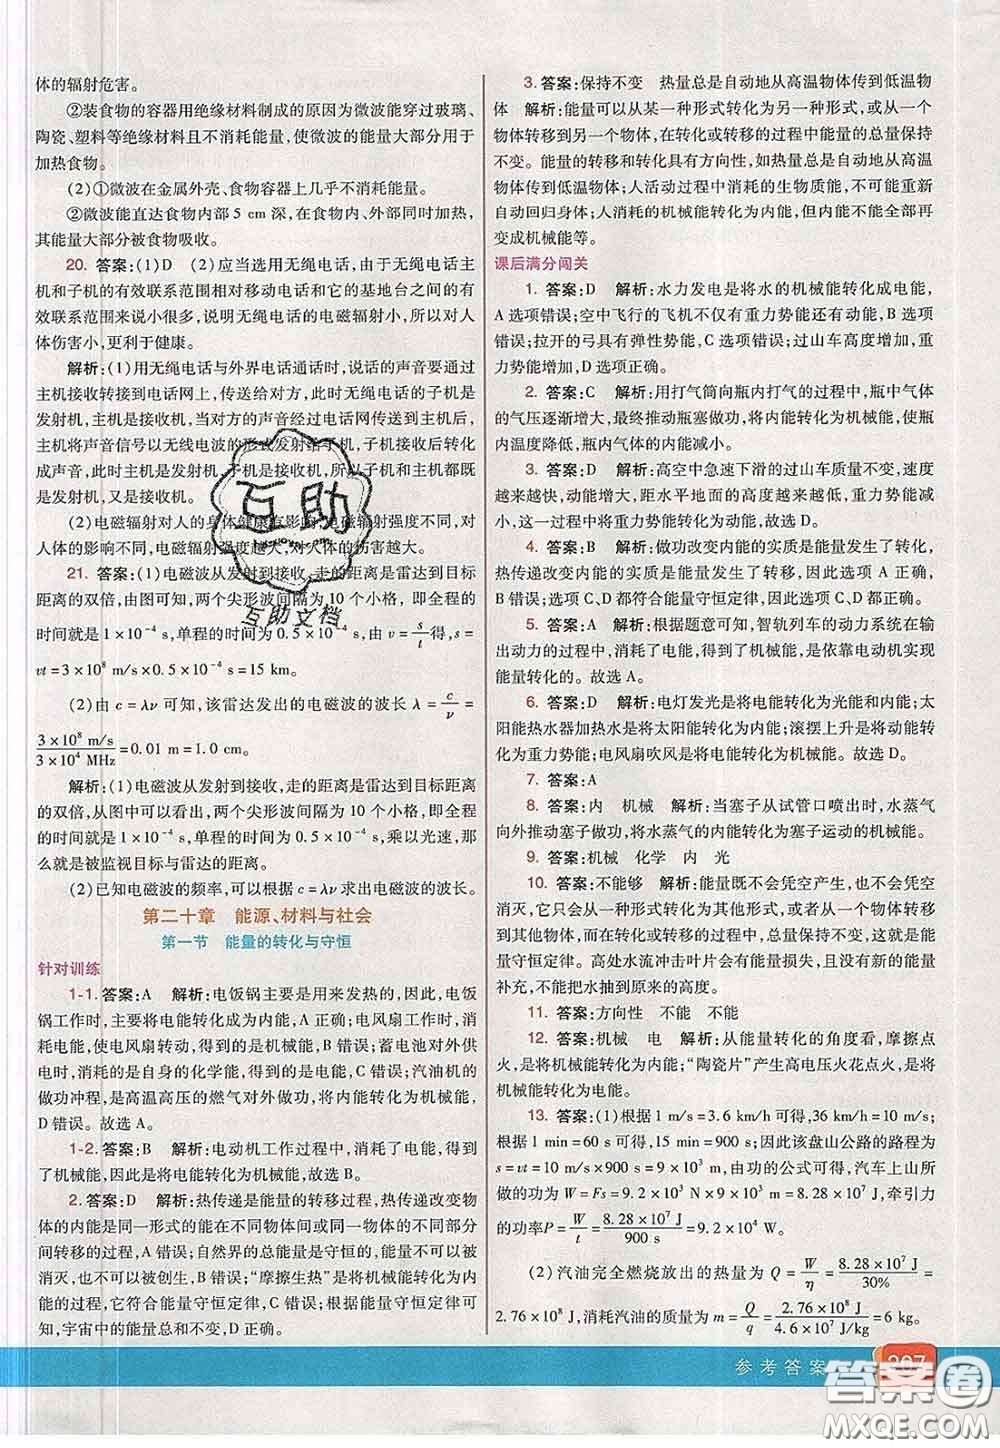 体的辐射危害。
②装食物的容器用绝缘材料制成的原因为微波能穿过玻璃、
陶瓷、塑料等绝缘材料且不消耗能量,使微波的能量大部分用于
加热食物。
(2)①微波在金属外壳、食物容器上几乎不消耗能量。
②微波能直达食物内部 5 cm 深,在内部、外部同时加热,
其能量大部分被食物吸收。
20. 答案:(1)D (2)应当选用无绳电话,由于无绳电话主
机和子机的有效联系范围相对移动电话和它的基地台之间的有
效联系范围小很多,说明无绳电话的电磁辐射小,所以对人
体伤害小,更利于健康。
解析:(1)用无绳电话与外界电话通话时,说话的声音要通过
主机接收转接到电话网上,传送给对方,此时无绳电话的子机是
发射机,主机是接收机。当对方的声音经过电话网传送到主机后,
主机将声音信号以无线电波的形式发射给手机,子机接收后转化
成声音,此时主机是发射机,子机是接收机。所以子机和主机都既
是发射机,又是接收机。
(2)电磁辐射对人的身体健康有影响,电磁辐射强度不同,对
人体的影响不同,电磁辐射强度越大,对人体的伤害越大。
21. 答案:(1)电磁波从发射到接收,走的距离是雷达到目标
距离的双倍,由图可知,两个尖形波间隔为 10 个小格,即全程的
时间就是 1×10⁻⁴ s,单程的时间为 0.5×10⁻⁴ s,由 v=s/t 得,s=
vt=3×10⁸ m/s×0.5×10⁻⁴ s=15 km。
(2)由 c=λν 可知,该雷达发出的电磁波的波长 λ=c/ν=
3×10⁸ m/s / 3×10⁴ MHz=0.01 m=1.0 cm。
解析:(1)电磁波从发射到接收,走的距离是雷达到目标距离
的双倍,从图中可以看到,两个尖形波间隔为 10 个小格,即全程
的时间就是 1×10⁻⁴ s,单程的时间为 0.5×10⁻⁴ s,乘以光速,那
么就是被监视目标与雷达的距离。
(2)已知电磁波的频率,可以根据 c=λν 求出电磁波的波长。
第二十章 能源、材料与社会
第一节 能量的转化与守恒
针对训练
1-1. 答案:A 解析:电饭锅主要是用来发热的,因此,电饭
锅工作时,主要将电能转化成为内能,A 正确;电风扇工作时,消
耗电能,使电风扇转动,得到的是机械能,B 错误;蓄电池充电时,
消耗的是自身的化学能,得到的是电能,C 错误;汽油机的
做功冲程,是高温高压的燃气对外做功,是将内能转化为机械能,
D 错误。故选 A。
1-2. 答案:B 解析:电动机工作过程中,消耗了电能,得到
了机械能,因此是将电能转化为机械能,故选 B。
2. 答案:D 解析:热传递是能量的转移过程,热传递改变物
体的内能是同一形式的能在不同物体间或同一物体的不同部分
间转移的过程,A 错误;自然界的总能量是守恒的,能量不可以被
消灭,也不可以被创生,B 错误;“摩擦生热”是将机械能转化为内
能的过程,它符合能量守恒定律,C 错误;根据能量守恒定律可
知,宇宙中的能量总和不变,D 正确。
3. 答案:保持不变 热量总是自动地从高温物体传到低温物
体 解析:能量可以从某一种形式转化为另一种形式,或从一个
物体转移到另一个物体,在转化或转移的过程中能量的总量保持
不变。能量的转移和转化具有方向性,如热量总是自动地从高温
物体传到低温物体;人活动过程中消耗的生物质能,不可能重新
自动回归身体;人消耗的机械能转化为内能,但内能不能全部再
变成机械能等。
课后满分闯关
1. 答案:D 解析:水力发电是将水的机械能转化成电能,
A 选项错误;空中飞行的飞机不仅有重力势能还有动能,B 选项
错误;拉开的弓具有弹性势能,C 选项错误;过山车高度增加,重
力势能增加,D 选项正确。
2. 答案:C 解析:用打气筒向瓶内打气的过程中,瓶中气体
的气压逐渐增大,最终推动瓶塞做功,将内能转化为机械能,使瓶
内温度降低,瓶内气体的内能减小。
3. 答案:D 解析:高空中急速下滑的过山车质量不变,速度
越来越快,动能增大,距水平地面的高度越来越低,重力势能减
小,这一过程中将重力势能转化为动能,故选 D。
4. 答案:B 解析:做功改变内能的实质是能量发生了转化,
热传递改变内能的实质是能量发生了转移,因此选项 A 正确,
B 错误;选项 C、D 都符合能量守恒定律,因此选项 C、D 正确。
5. 答案:A 解析:根据题意可知,智轨列车的动力系统在输
出动力的过程中,消耗了电能,得到了机械能,是依靠电动机实现
能量转化的。故选 A。
6. 答案:D 解析:电灯发光是将电能转化为光能和内能;太
阳能热水器加热水是将太阳能转化为内能;滚摆上升是将动能转
化为重力势能;电风扇吹风是将电能转化为机械能。故选 D。
7. 答案:A
8. 答案:内 机械 解析:当塞子从试管口喷出时,水蒸气
向外推动塞子做功,将水蒸气的内能转化为塞子运动的机械能。
9. 答案:机械 化学 内 光
10. 答案:不能够 解析:能量既不会凭空产生,也不会凭空
消灭,它只会从一种形式转化为其他形式,或者从一个物体转移
到另一个物体,而在转化或转移的过程中,能量的总量不变,这是
能量守恒定律。高处水流冲击叶片会有能量损失,且没有新的能量
补充,不能把水抽到原来的高度。
11. 答案:方向性 不能 不能
12. 答案:机械 电 解析:从能量转化的角度看,摩擦点
火,是将机械能转化为内能;“陶瓷片”产生高电压火花点火,是将
机械能转化为电能。
13. 答案:(1)根据 1 m/s=3.6 km/h 可得,36 km/h=10 m/s;
根据 1 min=60 s 可得,15 min=900 s;因此该盘山公路的路程为
s=vt=10 m/s×900 s=9 000 m。由功的公式可得,汽车上山所
做的功为 W=Fs=9.2×10³ N×9×10³ m=8.28×10⁷ J,牵引力
的功率 P=W/t=8.28×10⁷ J/900 s=9.2×10⁴ W。
(2)汽油完全燃烧放出的热量为 Q=W/η=8.28×10⁷ J/30%=
2.76×10⁸ J,消耗汽油的质量为 m=Q/q=2.76×10⁸ J/4.6×10⁷ J/kg=6 kg。
互助
互助文档
参考答案
207
答案圈
MXQE.COM